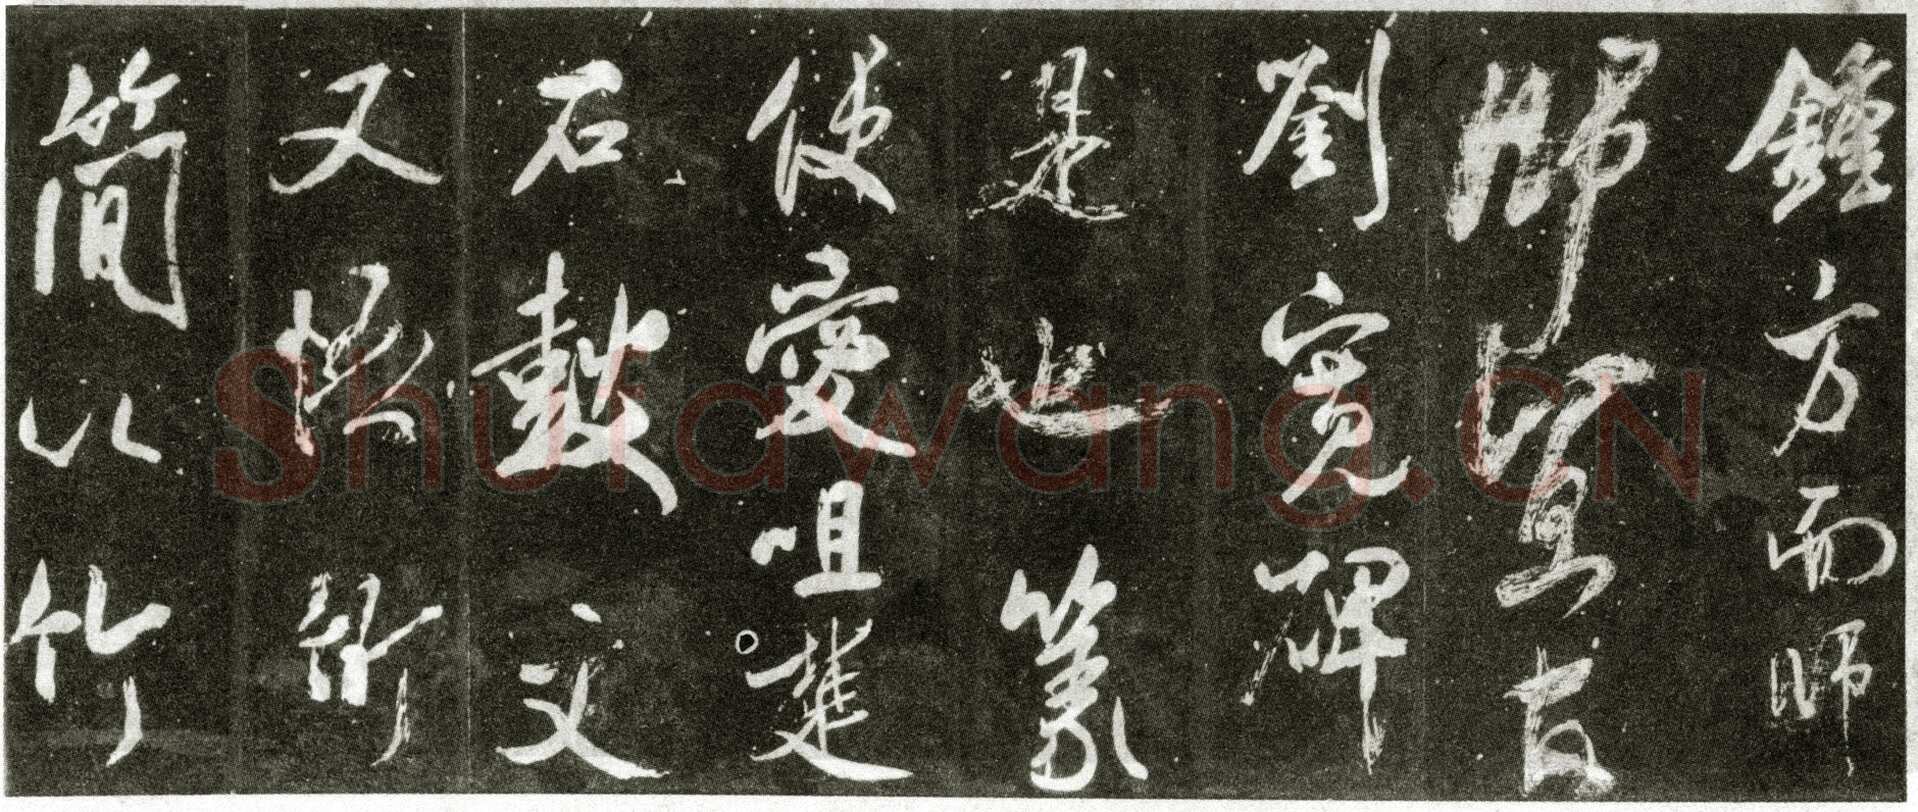 鍾方而師
師宜官
劉寬碑
是也篆
便愛咀楚
石鼓文
又悟竹
簡以竹
Shufawang.CN